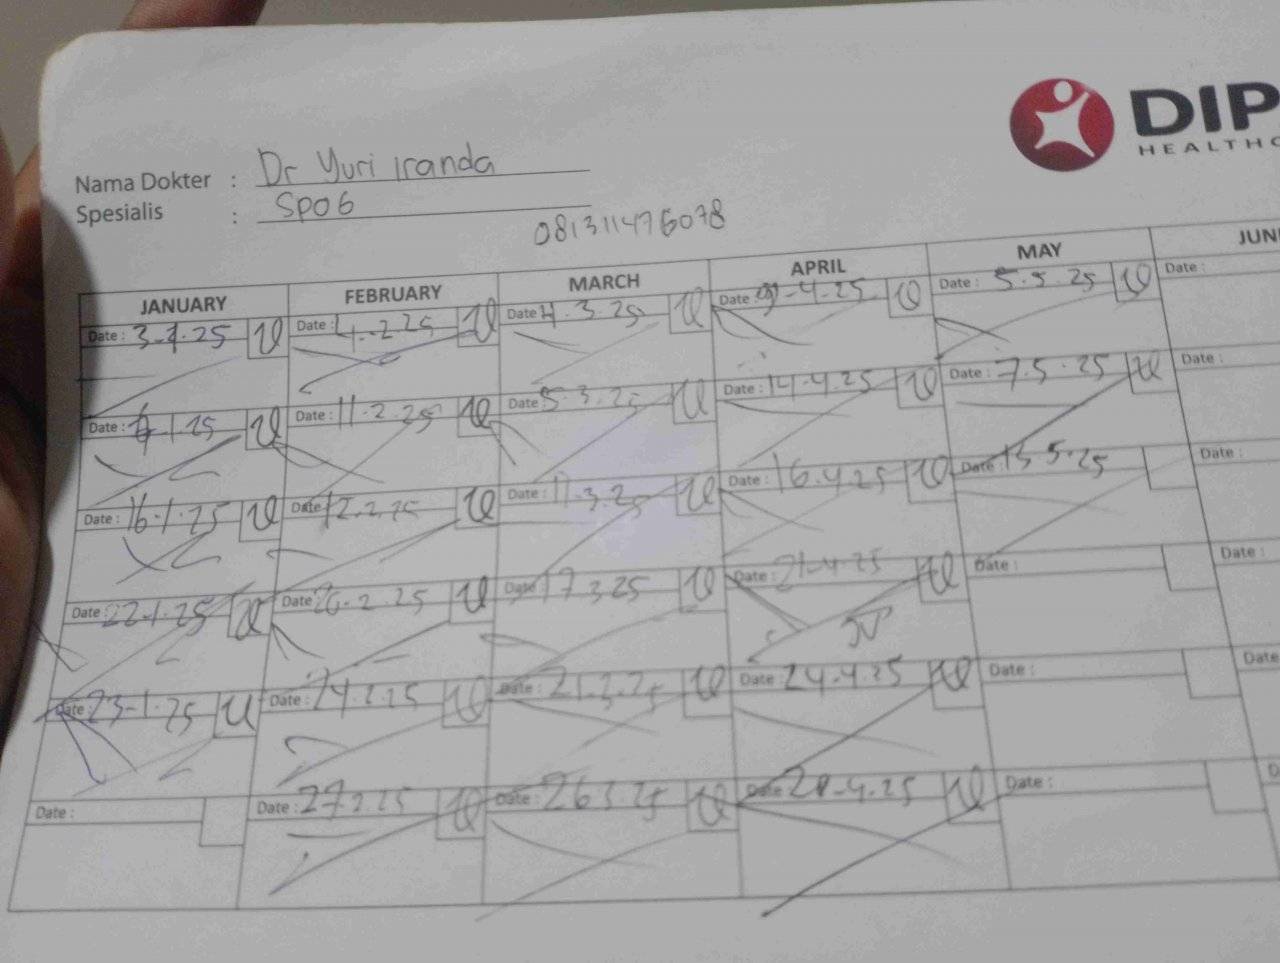 DIP
HEALTHC
Nama Dokter : Dr Yuri Iranda
Spesialis : SPOG
081311476078
JANUARY FEBRUARY MARCH APRIL MAY JUN
Date : 3-1-25 Date : 4.-2.25 Date : 4.3.25 Date : 9-4.25 Date : 5.5.25 Date :
Date : 6-1.25 Date : 11-2.25 Date : 5-3.25 Date : 14-4.25 Date : 7.5.25 Date :
Date : 16-1-25 Date : 12.2.25 Date : 11.3.25 Date : 16.4.25 Date : 13 5.25 Date :
Date : 22-1.25 Date : 20-2.25 Date : 17 3.25 Date : 21-4-25 Date : Date :
Date : 23-1.25 Date : 24.2.25 Date : 21.3.25 Date : 24.4.25 Date : Date
Date : Date : 27 2.25 Date : 26 3.25 Date : 4.25 Date : D